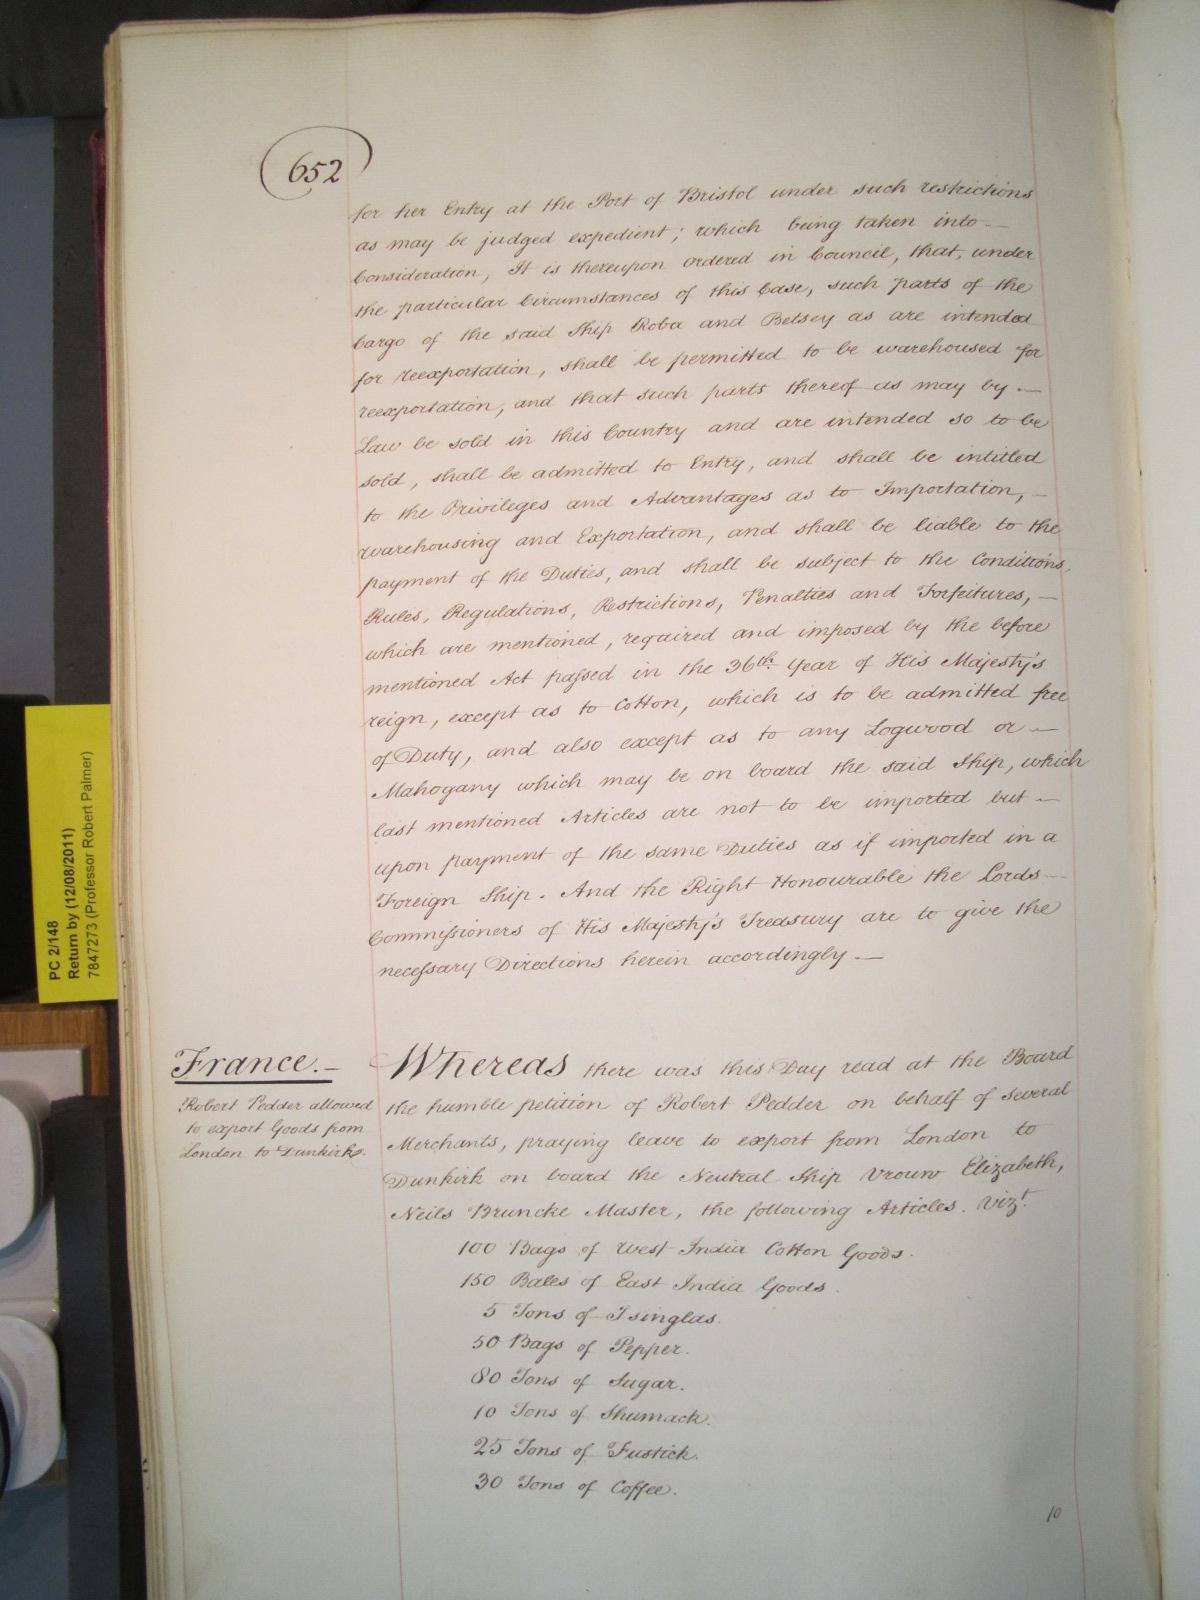 652
for her Entry at the Port of Bristol under such restrictions
as may be judged expedient; which being taken into —
Consideration, It is thereupon ordered in Council, that, under
the particular Circumstances of this Case, such parts of the
Cargo of the said Ship Roba and Betsey as are intended
for reexportation, shall be permitted to be warehoused for
reexportation, and that such parts thereof as may by —
Law be sold in this Country and are intended so to be
sold, shall be admitted to Entry, and shall be intitled
to the Privileges and Advantages as to Importation, —
warehousing and Exportation, and shall be liable to the
payment of the Duties, and shall be subject to the Conditions,
Rules, Regulations, Restrictions, Penalties and Forfeitures, —
which are mentioned, required and imposed by the before
mentioned Act passed in the 36th. Year of His Majesty's
reign, except as to Cotton, which is to be admitted free
of Duty, and also except as to any Logwood or —
Mahogany which may be on board the said Ship, which
last mentioned Articles are not to be imported but —
upon payment of the same Duties as if imported in a
Foreign Ship. And the Right Honourable the Lords —
Commissioners of His Majesty's Treasury are to give the
necessary Directions herein accordingly —
France. —
Robert Pedder allowed
to export Goods from
London to Dunkirk.
Whereas there was this Day read at the Board
the humble petition of Robert Pedder on behalf of several
Merchants, praying leave to export from London to
Dunkirk on board the Neutral Ship Vrouw Elizabeth,
Neils Bruncke Master, the following Articles. Vizt.
100 Bags of West India Cotton Goods.
150 Bales of East India Goods.
5 Tons of Isinglas.
50 Bags of Pepper.
80 Tons of Sugar.
10 Tons of Shumack.
25 Tons of Fustick.
30 Tons of Coffee.
10
PC 2/148
Return by (12/08/2011)
7847273 (Professor Robert Palmer)